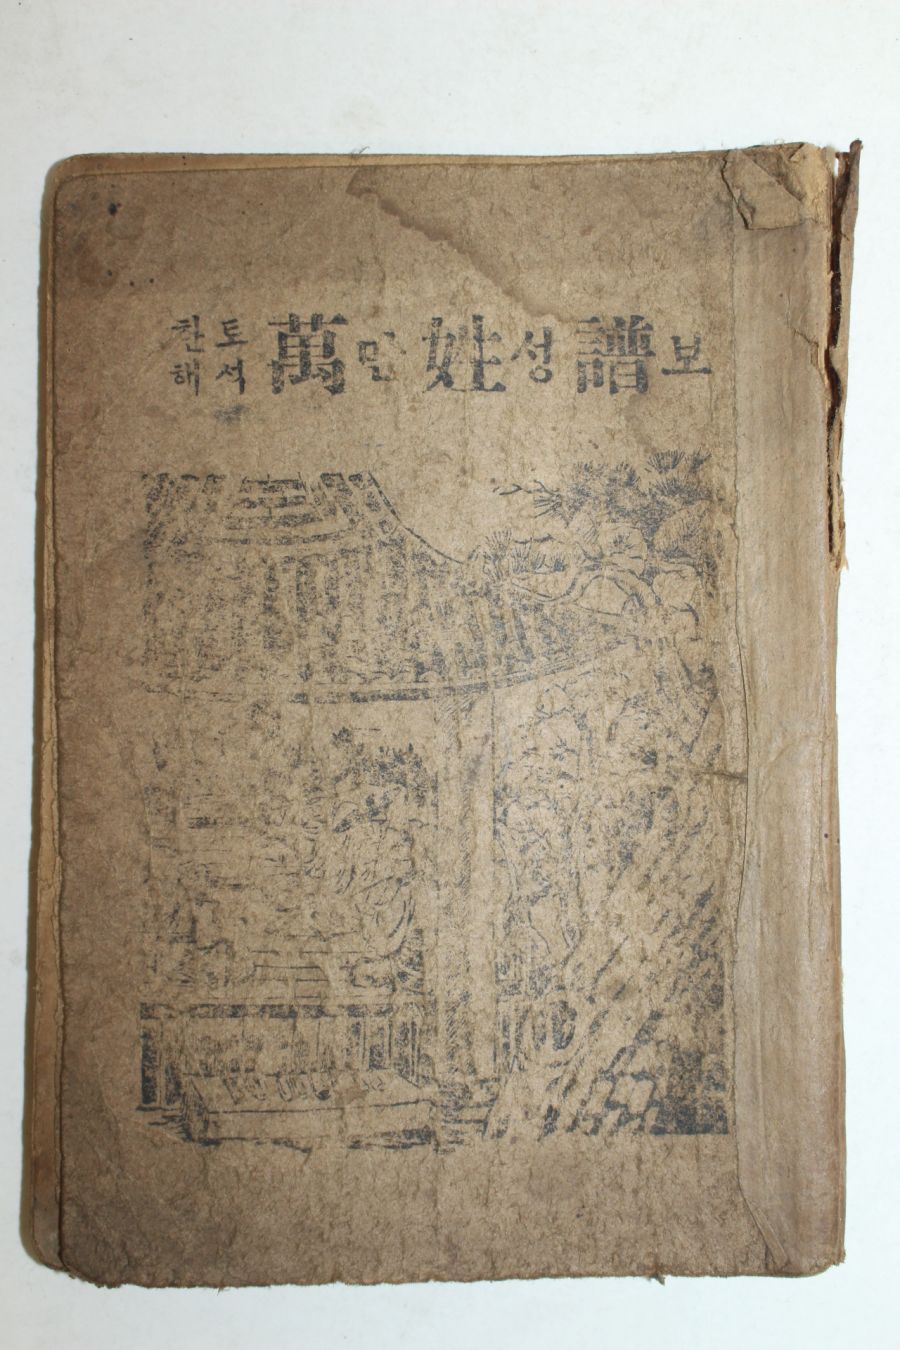 한토
해석
萬만姓성譜보